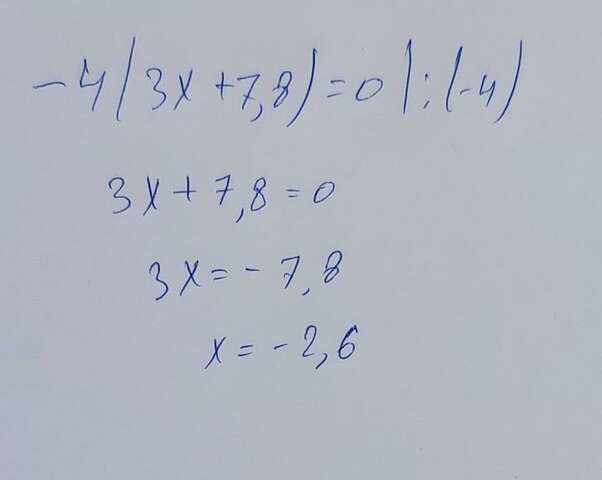 -4(3x+7,8)=0 |:(-4)
3x+7,8=0
3x=-7,8
x=-2,6